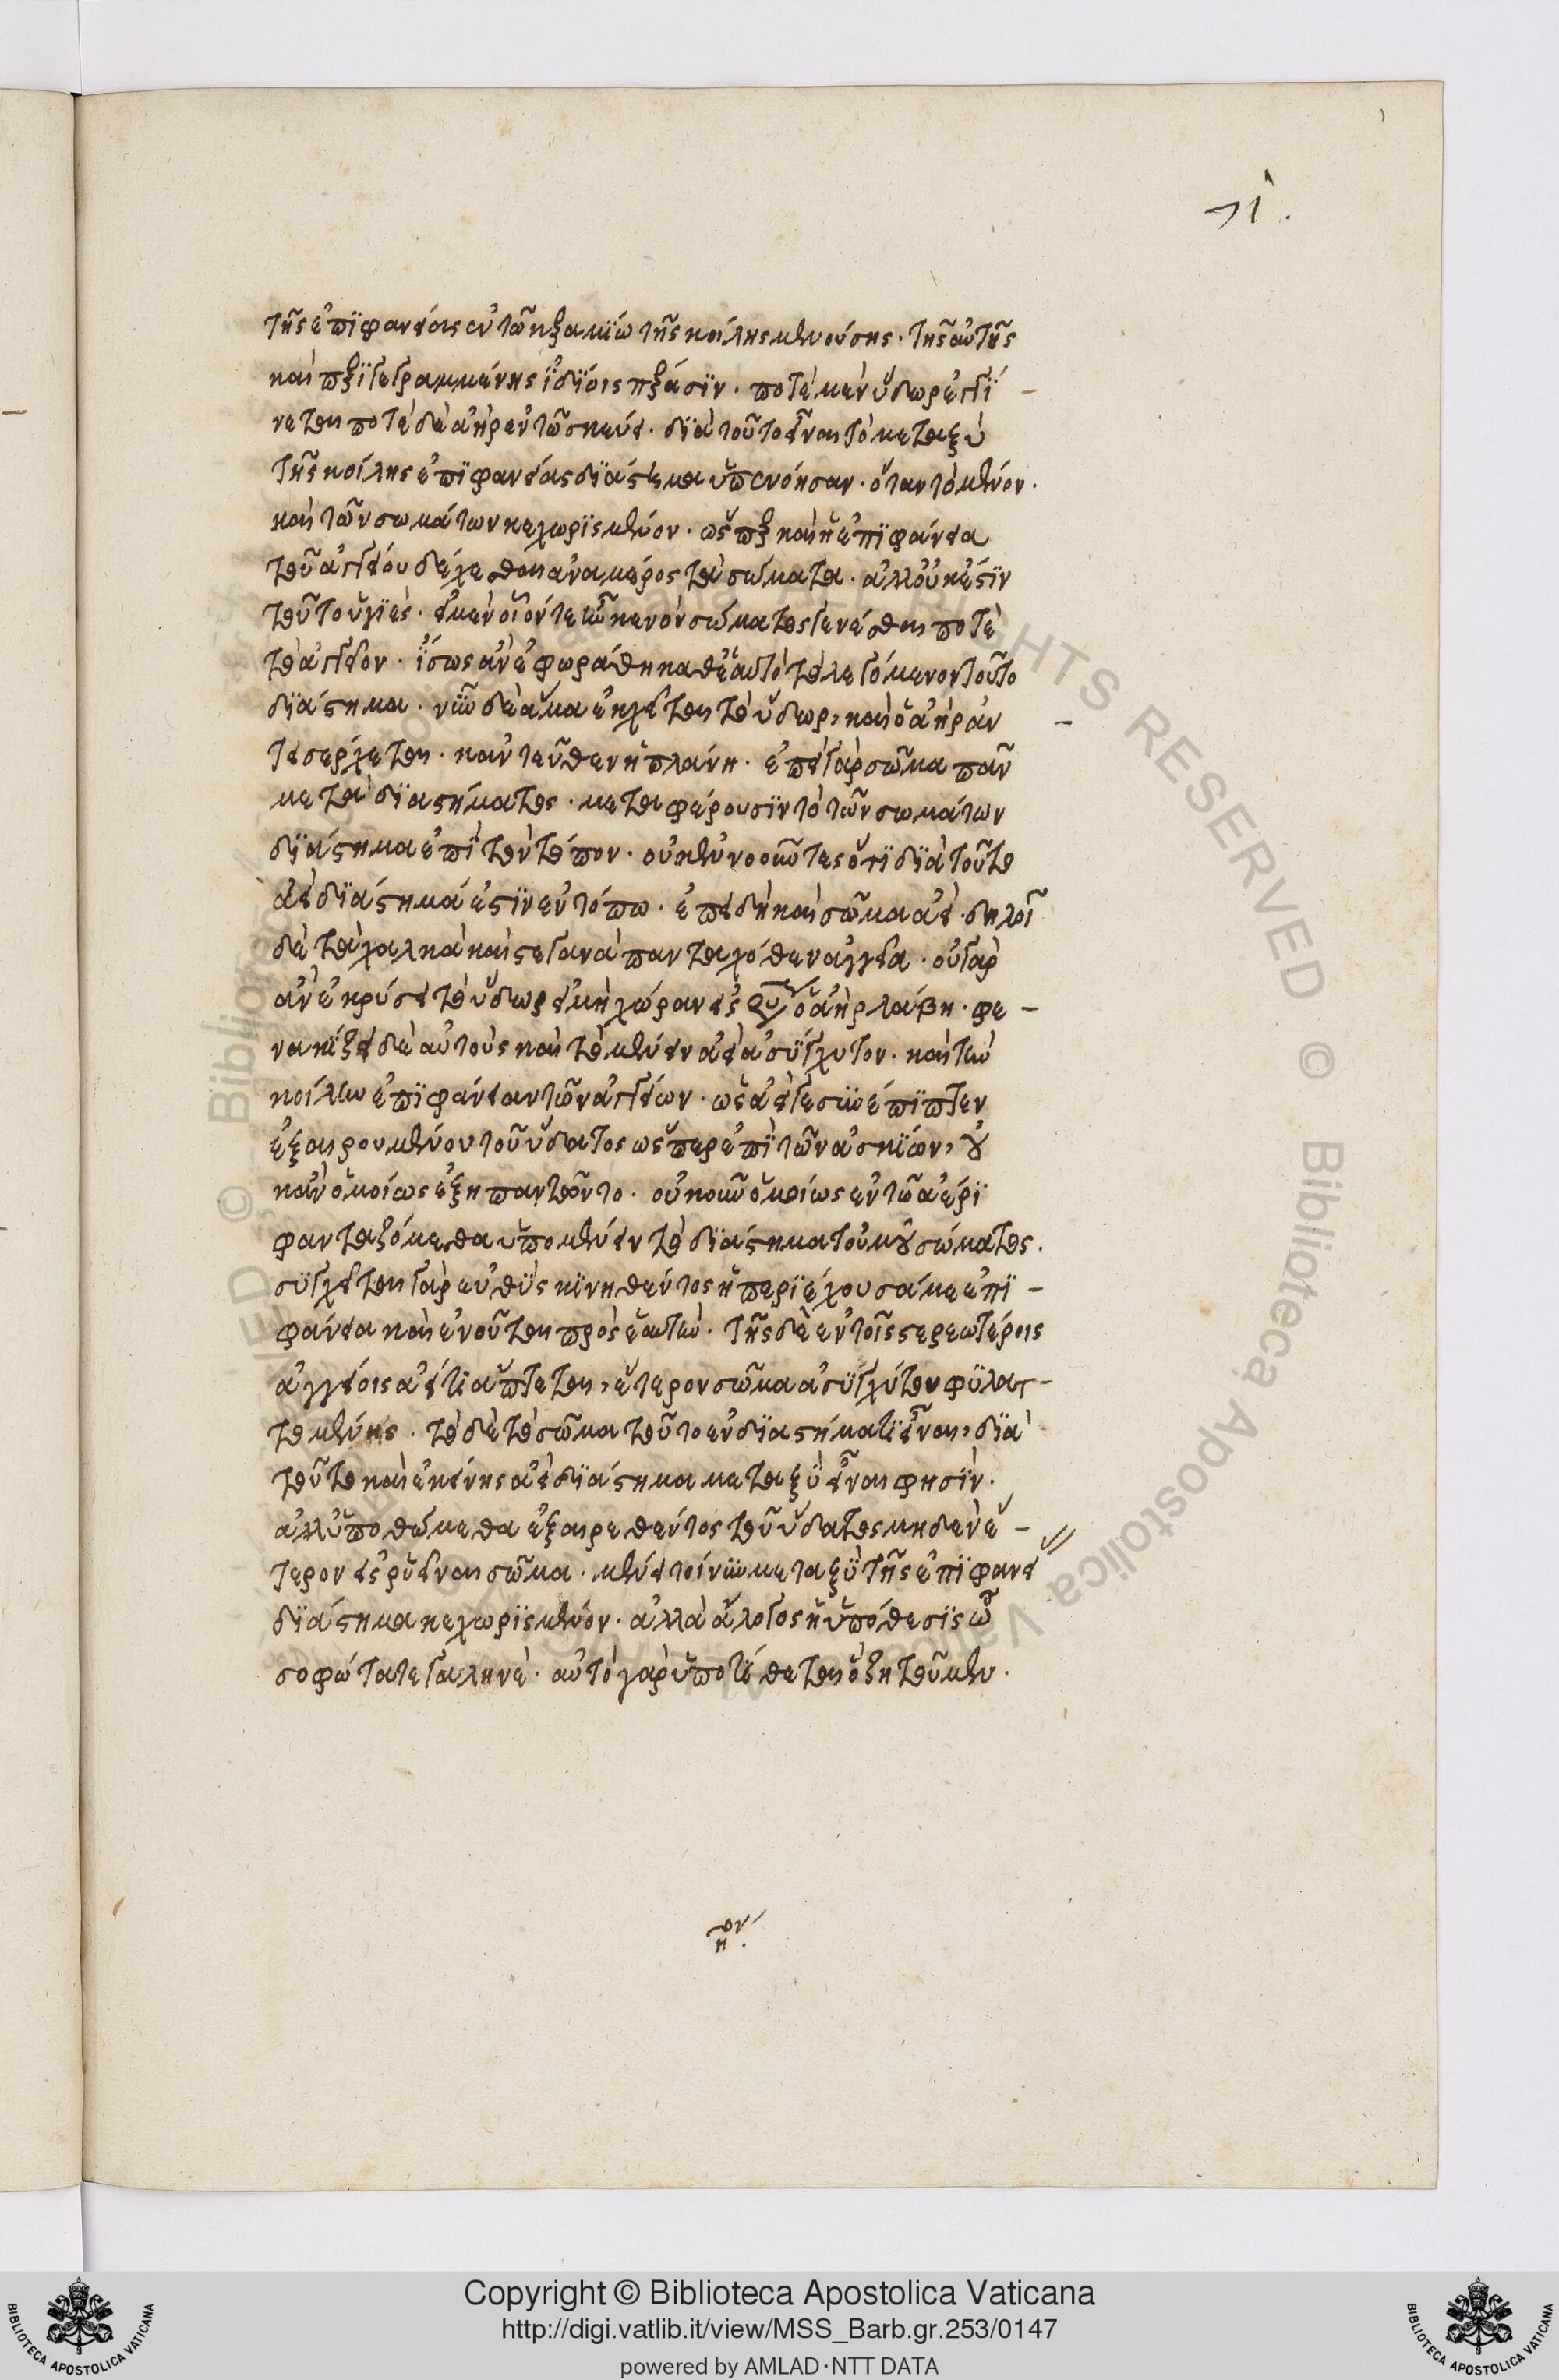 71.
τῆς ἐπιφανείας ἐν τῶ κεραμίω τῆς κοίλης μενούσης. τῆς αὐτῆς
καὶ περιγεγραμμένης ἰδίοις πέρασϊν. ποτὲ μὲν ὕδωρ ἐγγί-
νεται ποτὲ δὲ ἀὴρ ἐν τῶ σκεύει. διὰ τοῦτο εἶναι τὸ μεταξὺ
τῆς κοίλης ἐπιφανείας διάστημα ὑπενόησαν. ὅταν τὸ μένον.
καὶ τῶν σωμάτων κεχωρισμένον. ὥσπερ καὶ ἡ ἐπιφάνεια
τοῦ ἀγγείου δέχεσθαι ἀναμέρος τὰ σώματα. ἀλλ' οὐκ ἔστιν
τοῦτο ὑγιές. εἰ μὲν οἷόν τε ἦν κενὸν σώματος γενέσθαι ποτὲ
τὸ ἀγγεῖον. ἴσως ἂν ἐφωράθη καθ' ἑαυτὸ τὸ λεγόμενον τοῦτο
διάστημα. νῦν δὲ ἅμα ἐκχεῖται τὸ ὕδωρ, καὶ ὁ ἀὴρ ἀν
τεισερχεται. καντεῦθεν ἡ πλάνη. ἐπεὶ γὰρ σῶμα πᾶν
μετὰ διαστήματος. μεταφέρουσϊν τὸ τῶν σωμάτων
διάστημα ἐπὶ τὸν τόπον. οὐ μὲν νοοῦντες ὅτι διὰ τοῦτο
ἀεὶ διάστημά ἐστιν ἐν τόπω. ἐπειδὴ καὶ σῶμα ἀεί. δηλοῖ
δὲ τὰ χαλκᾶ καὶ στεγανὰ πανταχόθεν ἀγγεῖα. οὐ γὰρ
ἂν ἐκρύσει τὸ ὕδωρ εἰ μὴ χώραν εἰσρύσεως ὁ ἀὴρ λάβη. φε-
νακίζει δὲ αὐτοὺς καὶ τὸ μένειν ἀεὶ ἀσύγχυτον. καὶ τὴν
κοίλην ἐπιφάνειαν τῶν ἀγγείων. ὡς ἀεί γε συνέπιπτεν
ἐξαιρουμένου τοῦ ὕδατος ὥσπερ ἐπὶ τῶν ἀσκίων,
κἂν ὁμοίως ἐξηπατῶντο. οὐκοῦν ὁμοίως ἐν τῶ ἀέρι
φανταζόμεθα ὑπομένειν τὸ διάστημα τοῦ σώματος.
συγχεῖται γὰρ εὐθὺς κινηθέντος ἡ περιέχουσά με ἐπι-
φάνεια καὶ ἑνοῦται πρὸς ἑαυτήν. τῆς δὲ ἐν τοῖς στερεωτέροις
ἀγγείοις ἀεί τι ἅπτεται, ἕτερον σῶμα ἀσυγχύτου φυλατ-
τομένης. τὸ δὲ τὸ σῶμα τοῦτο ἐν διαστήματι εἶναι, διὰ
τοῦτο καὶ ἐκείνης ἀεὶ διάστημα μεταξὺ εἶναι φησίν.
ἀλλ' ὑποθώμεθα ἐξαιρεθέντος τοῦ ὕδατος μηδὲν ἕ-
τερον εἰσρυῆναι σῶμα. μένει τοίνυν μεταξὺ τῆς ἐπιφανεί
διάστημα κεχωρισμένον. ἀλλὰ ἄλογος ἡ ὑπόθεσις ὦ
σοφώτατε γαληνέ. αὐτὸ γὰρ ὑποτίθεται ὃ ζητοῦμεν.
Copyright © Biblioteca Apostolica Vaticana
http://digi.vatlib.it/view/MSS_Barb.gr.253/0147
powered by AMLAD·NTT DATA
BIBLIOTECA APOSTOLICA VATICANA
BIBLIOTECA APOSTOLICA VATICANA